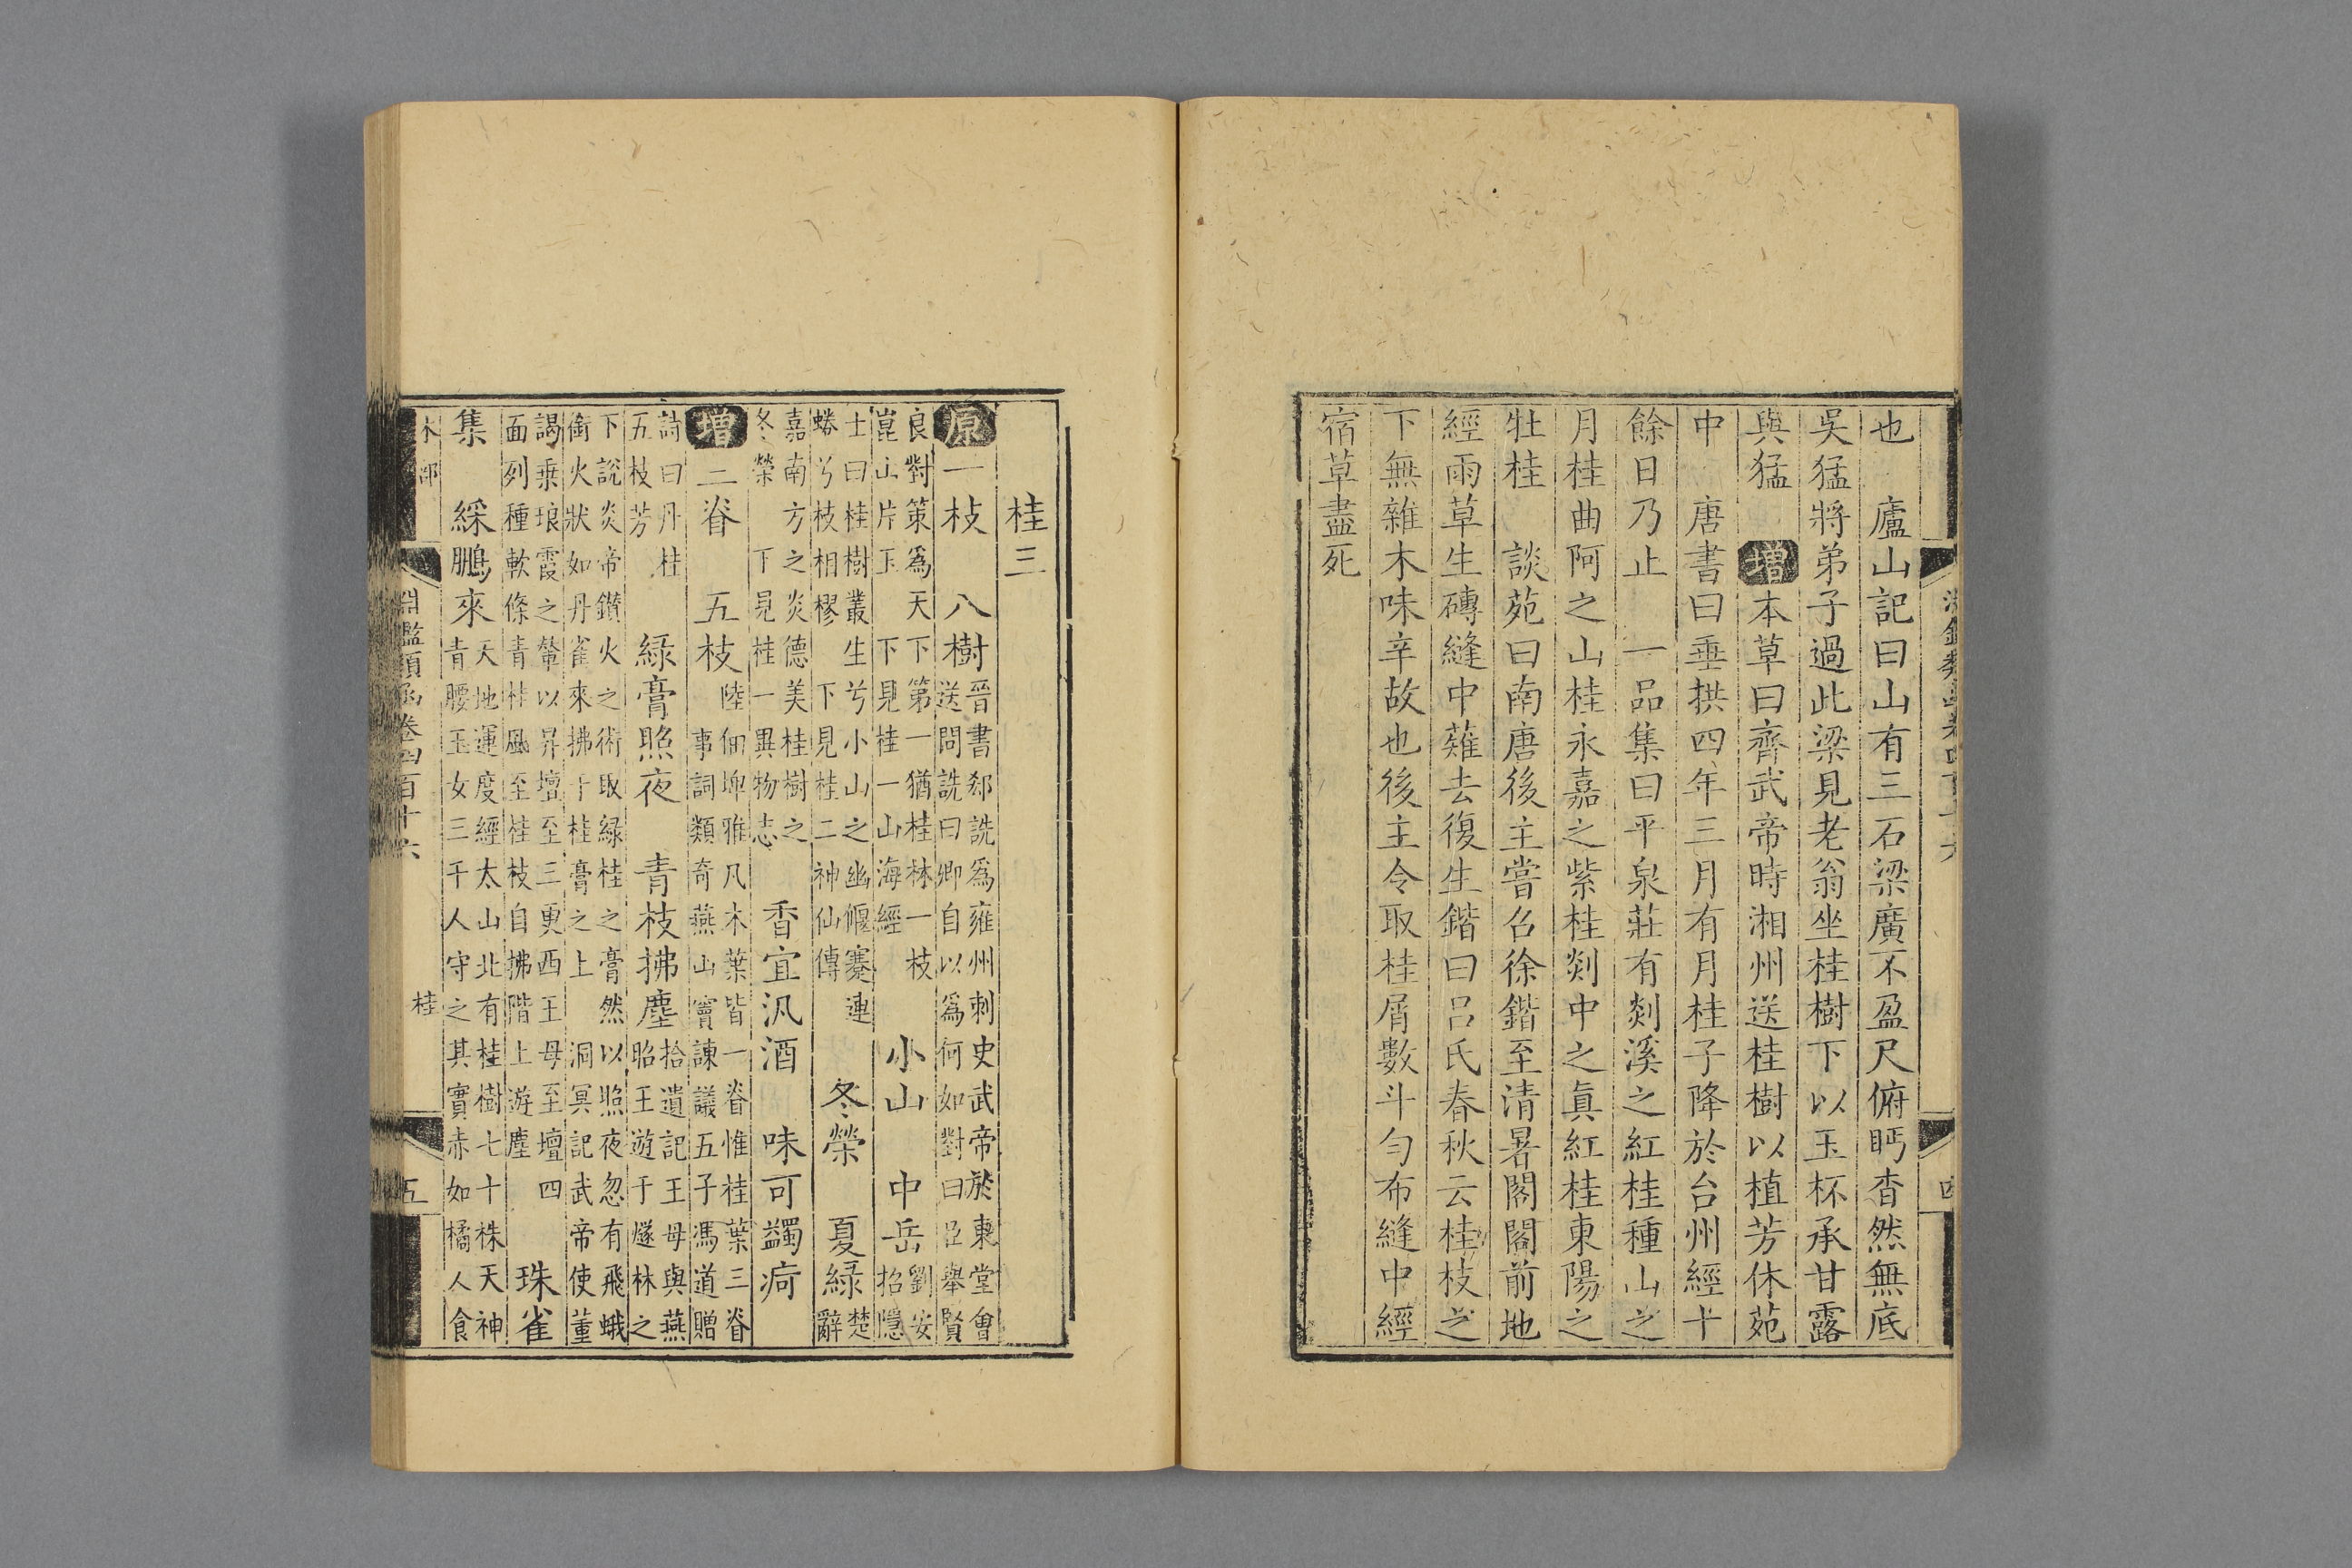 也　廬山記曰山有三石梁廣不盈尺俯眄杳然無底
吳猛將弟子過此梁見老翁坐桂樹下以玉杯承甘露
與猛　增本草曰齊武帝時湘州送桂樹以植芳休苑
中　唐書曰垂拱四年三月有月桂子降於台州經十
餘日乃止　一品集曰平泉莊有剡溪之紅桂種山之
月桂曲阿之山桂永嘉之紫桂剡中之真紅桂東陽之
牡桂　談苑曰南唐後主嘗召徐鍇至清暑閣閣前地
經雨草生磚縫中薙去復生鍇曰呂氏春秋云桂枝之
下無雜木味辛故也後主令取桂屑數斗勻布縫中經
宿草盡死
桂三
原一枝　八樹
晉書郄詵為雍州刺史武帝於東堂會
送問詵曰卿自以為何如對曰臣舉賢
良對策為天下第一猶桂林一枝
崑山片玉　下見桂一山海經
小山　中岳
劉安
招隱
士曰桂樹叢生兮小山之幽偃蹇連
蜷兮枝相樛　下見桂二神仙傳
冬榮　夏綠
楚
辭
嘉南方之炎德美桂樹之
冬榮　下見桂一異物志
香宜汎酒　味可蠲疴
增二脊　五枝
陸佃埤雅凡木葉皆一脊惟桂葉三脊
事詞類奇燕山竇諫議五子馮道贈
詩曰丹桂
五枝芳
綠膏照夜　青枝拂塵
拾遺記王母與燕
昭王遊于燧林之
下說炎帝鑽火之術取綠桂之膏然以照夜忽有飛蛾
銜火狀如丹雀來拂于桂膏之上　洞冥記武帝使董
謁乘琅霞之輦以昇壇至三更西王母至壇四
面列種軟條青桂風至桂枝自拂階上遊塵
珠雀
集　綵鵬來
天地運度經太山北有桂樹七十株天神
青腰玉女三千人守之其實赤如橘人食
木部
淵鑑類函卷四百十六
桂
五